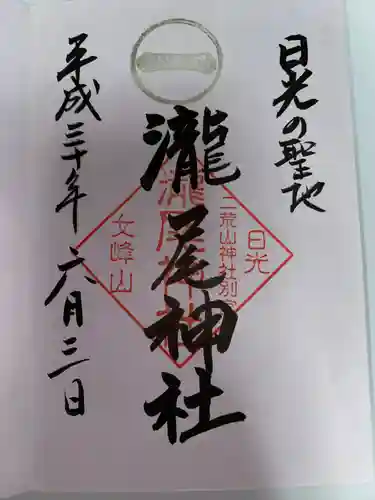 日光の聖地
一
瀧尾神社
平成三十年 六月三日
日光
二荒山神社別宮
瀧尾神社
女峰山